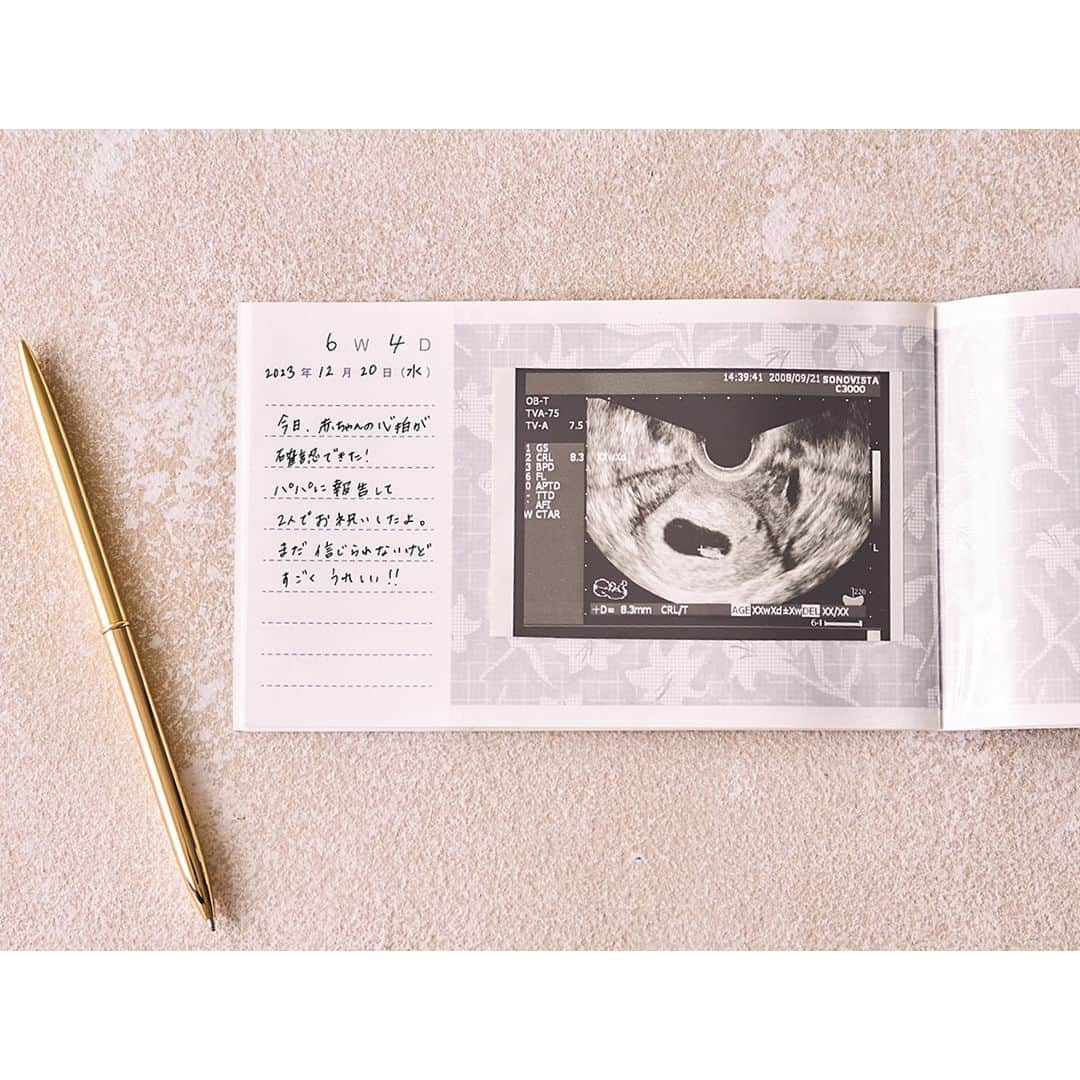 6 W 4 D
2023年12月20日(水)
今日、赤ちゃんの心拍が
確認できた!
パパに報告して
2人でお祝いしたよ。
まだ信じられないけど
すごくうれしい!!
14:39:41 2008/09/21 SONOVISTA
C3000
OB-T
TVA-75
TV-A 7.5
1 GS
2 CRL 8.3 XXwXd
3 BPD
6 FL
0 APTD
TTD
AFI
W CTAR
L
220
+D= 8.3mm CRL/T AGE XXwXd±Xw DEL XX/XX
64